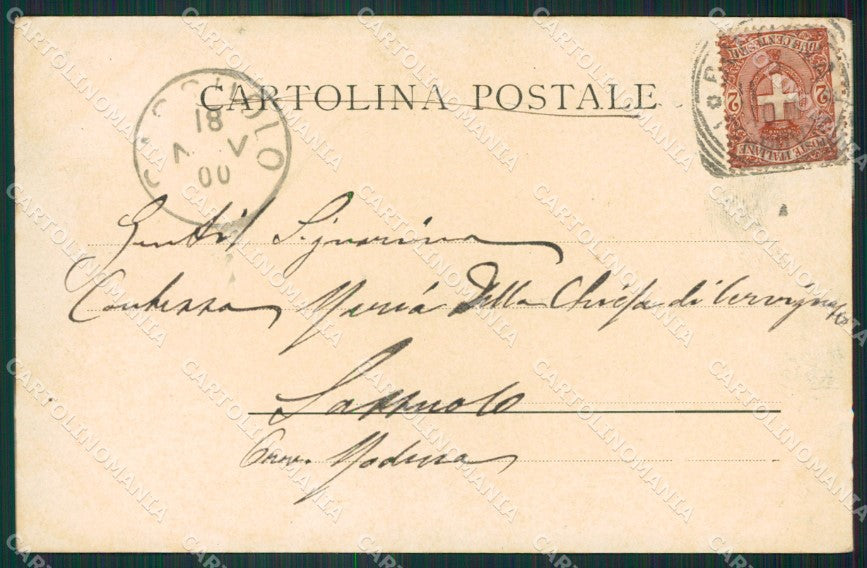 CARTOLINA POSTALE
18
V
00
2 2
POSTE ITALIANE
Gentil Signorina
Contessa Maria Della Chiesa di Cervignasco
Sassuolo
Prov. Modena
CARTOLINOMANIA